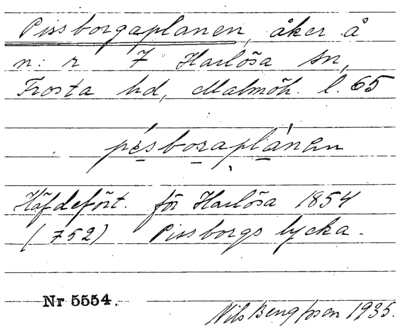 Pissborgaplanen, åker å
n: r 7 Harlösa sn,
Frosta hd, Malmöh. l. 65
pèsboraplánan
Häfdefört. för Harlösa 1854
(752) Pissborgs lycka.
Nr 5554.
Nils Bengtsson 1935.